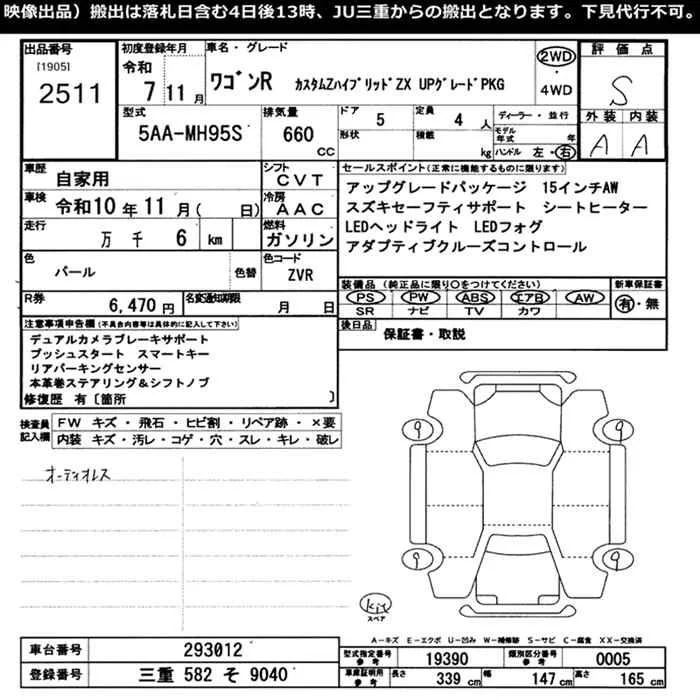 映像出品）搬出は落札日含む4日後13時、JU三重からの搬出となります。下見代行不可。
出品番号
[1905]
2511
初度登録年月
令和
7 11 月
車名・グレード
ワゴンR カスタムZハイブリッドZX UPグレードPKG
2WD
4WD
評価点
S
外装 内装
A A
型式
5AA-MH95S
排気量
660
CC
ドア
5
形状
定員
4 人
積載
kg
ディーラー・並行
モデル年式 年
ハンドル 左・右
車歴
自家用
シフト
CVT
車検
令和10 年 11 月( 日)
冷房
AAC
走行
万 千 6 km
燃料
ガソリン
色
パール
色替
色コード
ZVR
R券
6,470 円
名変通知期限
月 日
セールスポイント(正常に機能するものに限ります)
アップグレードパッケージ 15インチAW
スズキセーフティサポート シートヒーター
LEDヘッドライト LEDフォグ
アダプティブクルーズコントロール
装備品(純正品に限り○をつけてください)
PS PW ABS エアB AW
SR ナビ TV カワ
新車保証書
有・無
後日品
保証書・取説
注意事項申告欄(不具合内容等は具体的に記入して下さい)
デュアルカメラブレーキサポート
プッシュスタート スマートキー
リアパーキングセンサー
本革巻ステアリング＆シフトノブ
修復歴 有〔箇所 〕
検査員記入欄
FW キズ・飛石・ヒビ割・リペア跡・×要
内装 キズ・汚レ・コゲ・穴・スレ・キレ・破レ
オーディオレス
9
9
9
9
kit
スペア
A－キズ E－エクボ U－凹み W－補修跡 S－サビ C－腐食 XX－交換済
車台番号
293012
登録番号
三重 582 そ 9040
型式指定番号
参考
19390
類別区分番号
参考
0005
車庫証明用
参考
長さ
339 cm
幅
147 cm
高さ
165 cm